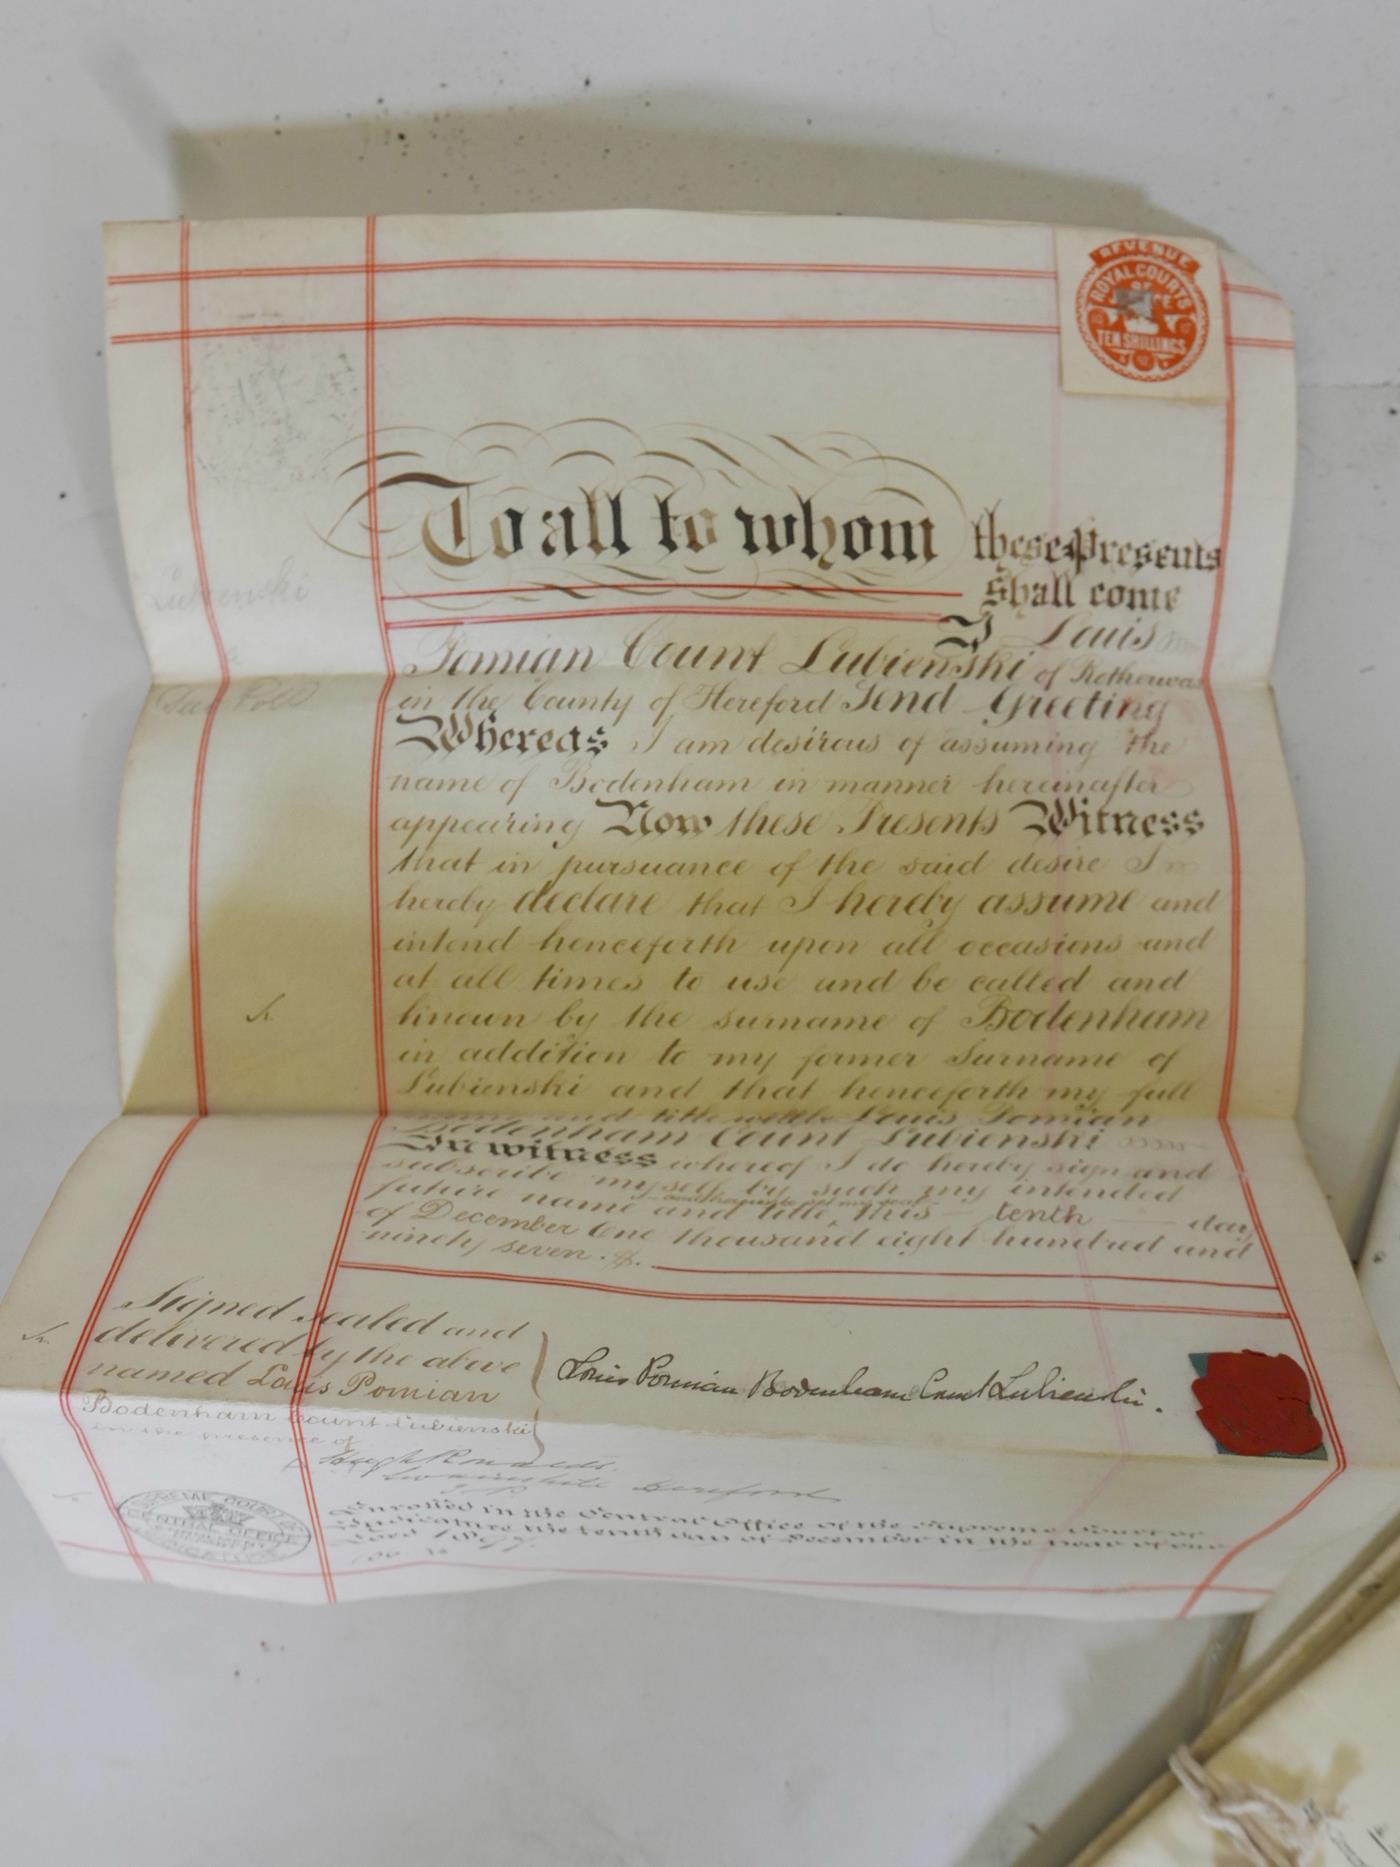 REVENUE
ROYAL COURTS
TEN SHILLINGS
To all to whom these Presents
Shall come
Lubienski
I Louis
Pomian Count Lubienski of Rotherwas
in the County of Hereford Send Greeting
Dee Poll
Whereas I am desirous of assuming the
name of Bodenham in manner hereinafter
appearing Now these Presents Witness
that in pursuance of the said desire I
hereby declare that I hereby assume and
intend henceforth upon all occasions and
at all times to use and be called and
known by the surname of Bodenham
in addition to my former Surname of
Lubienski and that henceforth my full
name and title will be Louis Pomian
Bodenham Count Lubienski
In witness whereof I do hereby sign and
subscribe myself by such my intended
future name and title, and hereunto set my seal this tenth day
of December One thousand eight hundred and
ninety seven.
Signed sealed and
delivered by the above
named Louis Pomian
Bodenham Count Lubienski
in the presence of
Louis Pomian Bodenham Count Lubienski.
Hereford
SUPREME COURT OF
CENTRAL OFFICE
JUDICATURE
Enrolled in the Central Office of the Supreme Court of
Judicature the tenth day of December in the year of our
Lord 1897